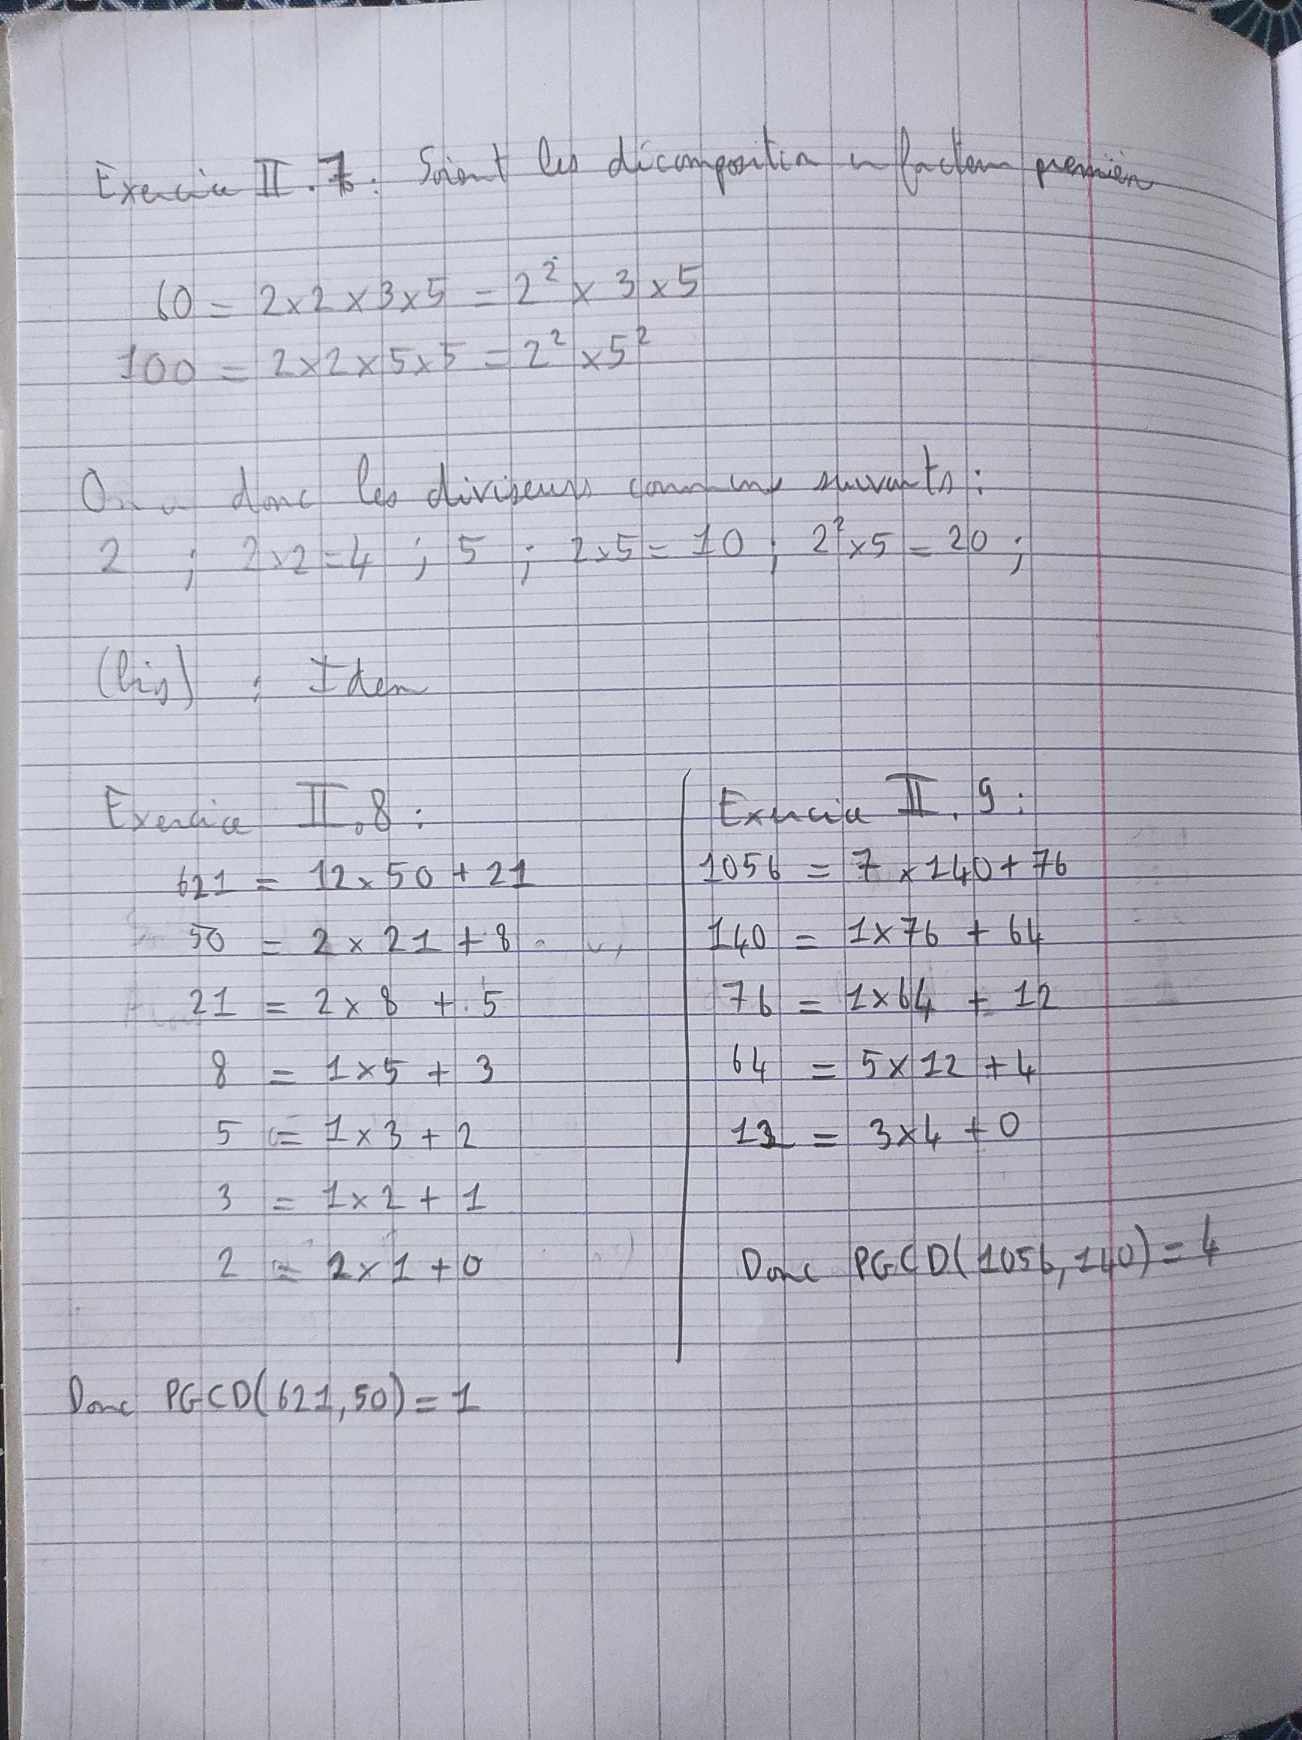 Exercice II.7: Soient les décomposition en facteur premiers
60 = 2×2×3×5 = 2² × 3 × 5
100 = 2×2×5×5 = 2² × 5²
On a donc les diviseurs communs suivants :
2 ; 2×2=4 ; 5 ; 2×5 = 10 ; 2²×5 = 20 ;
(bis) : Idem
Exercice II.8 :
621 = 12×50 + 21
50 = 2 × 21 + 8
21 = 2 × 8 + 5
8 = 1×5 + 3
5 = 1×3 + 2
3 = 1×2 + 1
2 = 2×1 + 0
Donc PGCD(621,50) = 1
Exercice II.9 :
1056 = 7 × 140 + 76
140 = 1×76 + 64
76 = 1×64 + 12
64 = 5×12 + 4
12 = 3×4 + 0
Donc PGCD(1056,140) = 4